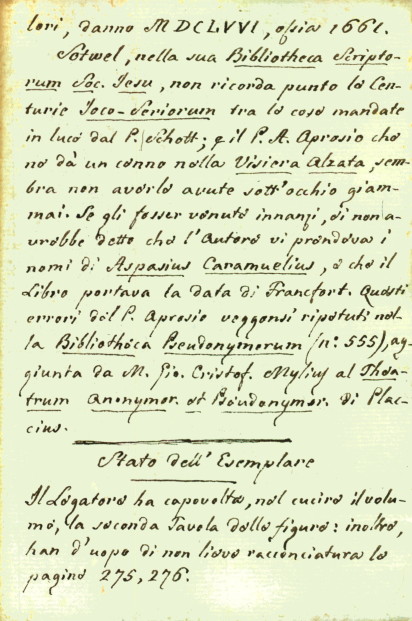 lori, danno MDCLVVI, ossia 1661.
Sotwel, nella sua Bibliotheca Scripto-
rum Soc. Iesu, non ricorda punto le Cen-
turie Joco-Seriorum tra le cose mandate
in luce dal P. Schott; e il P. A. Aprosio che
ne dà un cenno nella Visiera Alzata, sem-
bra non averle avute sott'occhio giam-
mai. Se gli fosser venute innanzi, ei non a-
vrebbe detto che l'Autore vi prendeva i
nomi di Aspasius Caramuelius, e che il
Libro portava la data di Francfort. Questi
errori del P. Aprosio veggonsi ripetuti nel-
la Bibliotheca Pseudonymorum (n.º 555), ag-
giunta da M. Gio. Cristof. Mylius al Thea-
trum Anonymor. et Pseudonymor. di Plac-
cius.
Stato dell'Esemplare
Il Legatore ha capovolta, nel cucire il volu-
me, la seconda Tavola delle figure: inoltre,
han d'uopo di non lieve racconciatura le
pagine 275, 276.